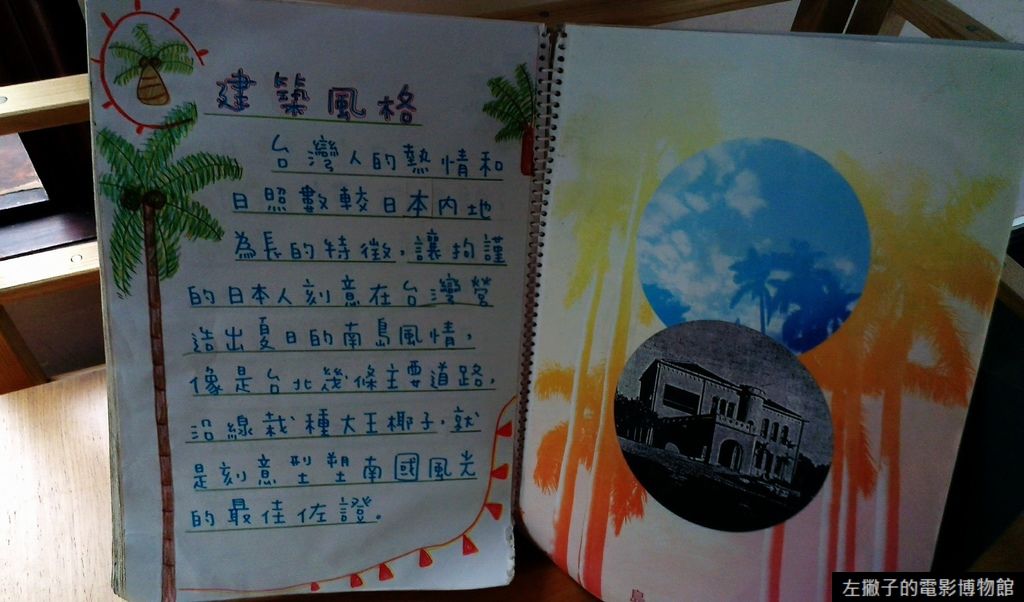 建築風格
台灣人的熱情和
日照數較日本內地
為長的特徵,讓拘謹
的日本人刻意在台灣營
造出夏日的南島風情,
像是台北幾條主要道路,
沿線栽種大王椰子,就
是刻意型塑南國風光
的最佳佐證。
左撇子的電影博物館